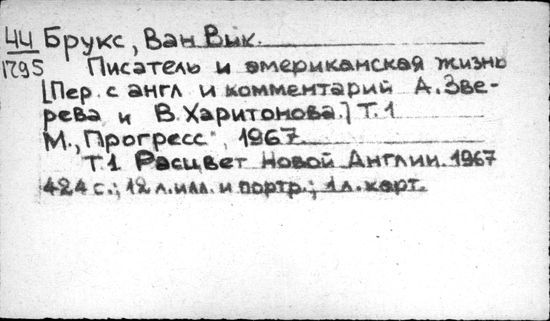 44 Брукс, Ван Вик.
1295 Писатель и американская жизнь
[Пер. с англ и комментарий А. Зве-
рева и В. Харитонова.] Т. 1
М., "Прогресс", 1967.
Т.1 Расцвет Новой Англии. 1967
424 с.; 12 л. илл. и портр.; 1 л. карт.